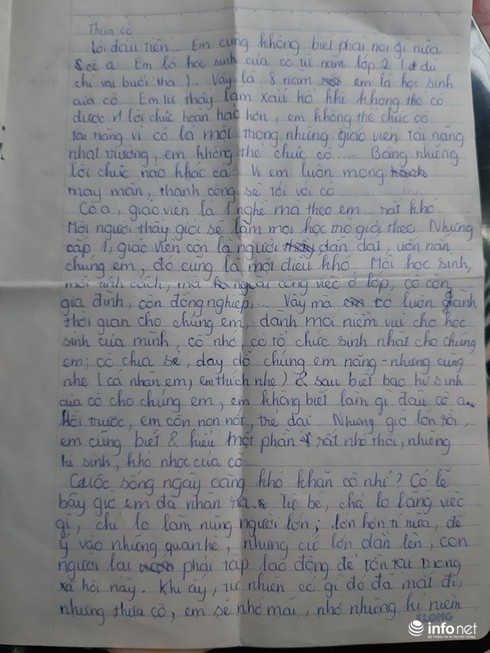 Thưa cô
Lời đầu tiên... Em cũng không biết phải nói gì nữa
cô ạ. Em là học sinh của cô từ năm lớp 2 (dù
chỉ vài buổi thôi)... Vậy là 8 năm em là học sinh
của cô. Em tự thấy làm xấu hổ khi không thể có
được 1 lời chúc hoàn hảo hơn, em không thể chúc cô
tài năng vì cô là một trong những giáo viên tài năng
nhất trường, em không thể chúc cô.... Bằng những
lời chúc nào khác cả. Vì em luôn mong
may mắn, thành công sẽ tới với cô
Cô ạ, giáo viên là 1 nghề mà theo em... rất khó
Mọi người thầy giỏi sẽ làm mọi học trò giỏi theo. Nhưng
cấp 1, giáo viên còn là người dẫn dắt, uốn nắn
chúng em, đó cũng là một điều khó. Mỗi học sinh,
mỗi tính cách, mà ngoài công việc ở lớp, cô còn
gia đình, còn đồng nghiệp... Vậy mà cô luôn dành
thời gian cho chúng em, dành mọi niềm vui cho học
sinh của mình, cô nhớ, cô tổ chức sinh nhật cho chúng
em; cô chia sẻ, dạy dỗ chúng em nặng - nhưng cũng
nhẹ (cá nhân em, em thích nhẹ) & sau biết bao hi sinh
của cô cho chúng em, em không biết làm gì đâu cô ạ.
Hồi trước, em còn non nớt, trẻ dại. Nhưng giờ lớn rồi,
em cũng biết & hiểu một phần rất nhỏ thôi, những
hi sinh, khó nhọc của cô
Cuộc sống ngày càng khó khăn cô nhỉ? Có lẽ
bây giờ em đã nhận ra. Từ bé, chả lo lắng việc
gì, chỉ lo làm nũng người lớn; lớn hơn tí nữa, để
ý vào những quan hệ, nhưng cứ lớn dần lên, con
người lại phải tập lao động để tồn tại trong
xã hội này. Khi ấy, tự nhiên có gì đó đã mất đi,
nhưng thưa cô, em sẽ nhớ mãi, nhớ những kỉ niệm
KLONG
infonet